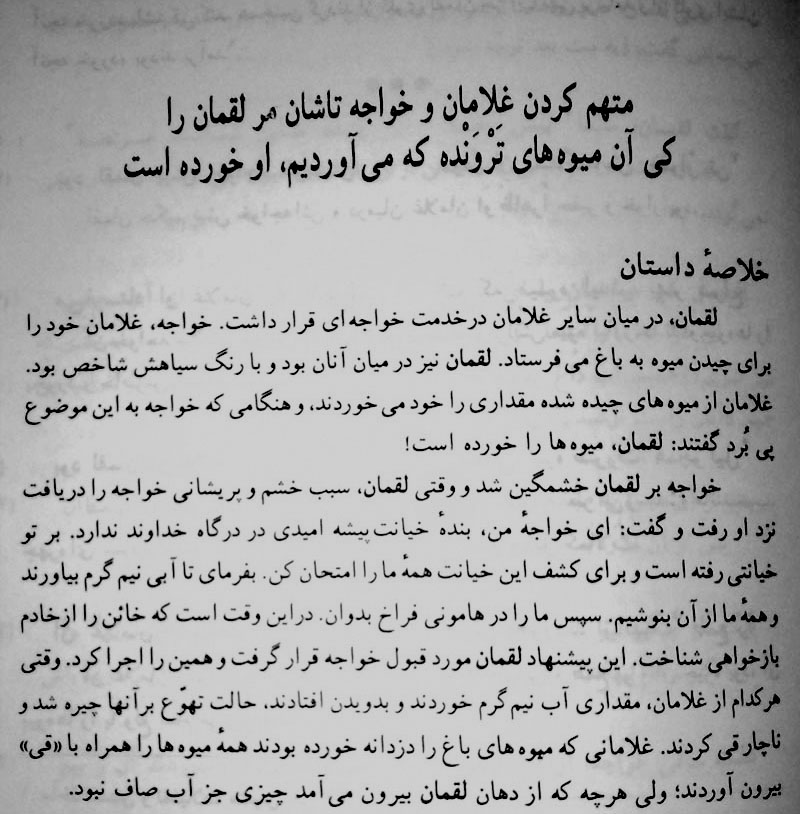 متهم کردن غلامان و خواجه تاشان مر لقمان را
کی آن میوه‌های تَرْوَنْده که می‌آوردیم، او خورده است
خلاصهٔ داستان
لقمان، در میان سایر غلامان درخدمت خواجه‌ای قرار داشت. خواجه، غلامان خود را
برای چیدن میوه به باغ می‌فرستاد. لقمان نیز در میان آنان بود و با رنگ سیاهش شاخص بود.
غلامان از میوه‌های چیده شده مقداری را خود می‌خوردند، و هنگامی که خواجه به این موضوع
پی بُرد گفتند: لقمان، میوه‌ها را خورده است!
خواجه بر لقمان خشمگین شد و وقتی لقمان، سبب خشم و پریشانی خواجه را دریافت
نزد او رفت و گفت: ای خواجهٔ من، بندهٔ خیانت‌پیشه امیدی در درگاه خداوند ندارد. بر تو
خیانتی رفته است و برای کشف این خیانت همهٔ ما را امتحان کن. بفرمای تا آبی نیم گرم بیاورند
و همهٔ ما از آن بنوشیم. سپس ما را در هامونی فراخ بدوان. دراین وقت است که خائن را ازخادم
بازخواهی شناخت. این پیشنهاد لقمان مورد قبول خواجه قرار گرفت و همین را اجرا کرد. وقتی
هرکدام از غلامان، مقداری آب نیم گرم خوردند و بدویدن افتادند، حالت تهوّع برآنها چیره شد و
ناچار قی کردند. غلامانی که میوه‌های باغ را دزدانه خورده بودند همهٔ میوه‌ها را همراه با «قی»
بیرون آوردند؛ ولی هرچه که از دهان لقمان بیرون می‌آمد چیزی جز آب صاف نبود.